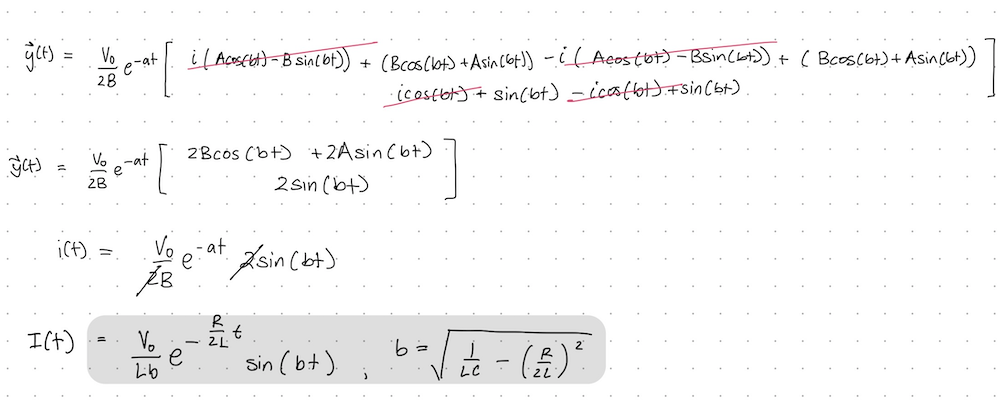 ÿ(t) = V₀/2B e^-at [ i(Acos(bt) - Bsin(bt)) + (Bcos(bt) + Asin(bt)) - i(Acos(bt) - Bsin(bt)) + (Bcos(bt) + Asin(bt)) ]
icos(bt) + sin(bt) - icos(bt) + sin(bt)
y⃗(t) = V₀/2B e^-at [ 2Bcos(bt) + 2Asin(bt) ]
2sin(bt)
i(t) = V₀/2B e^-at 2sin(bt)
I(t) = V₀/Lb e^(-R/2L t) sin(bt) , b = √(1/LC - (R/2L)²)